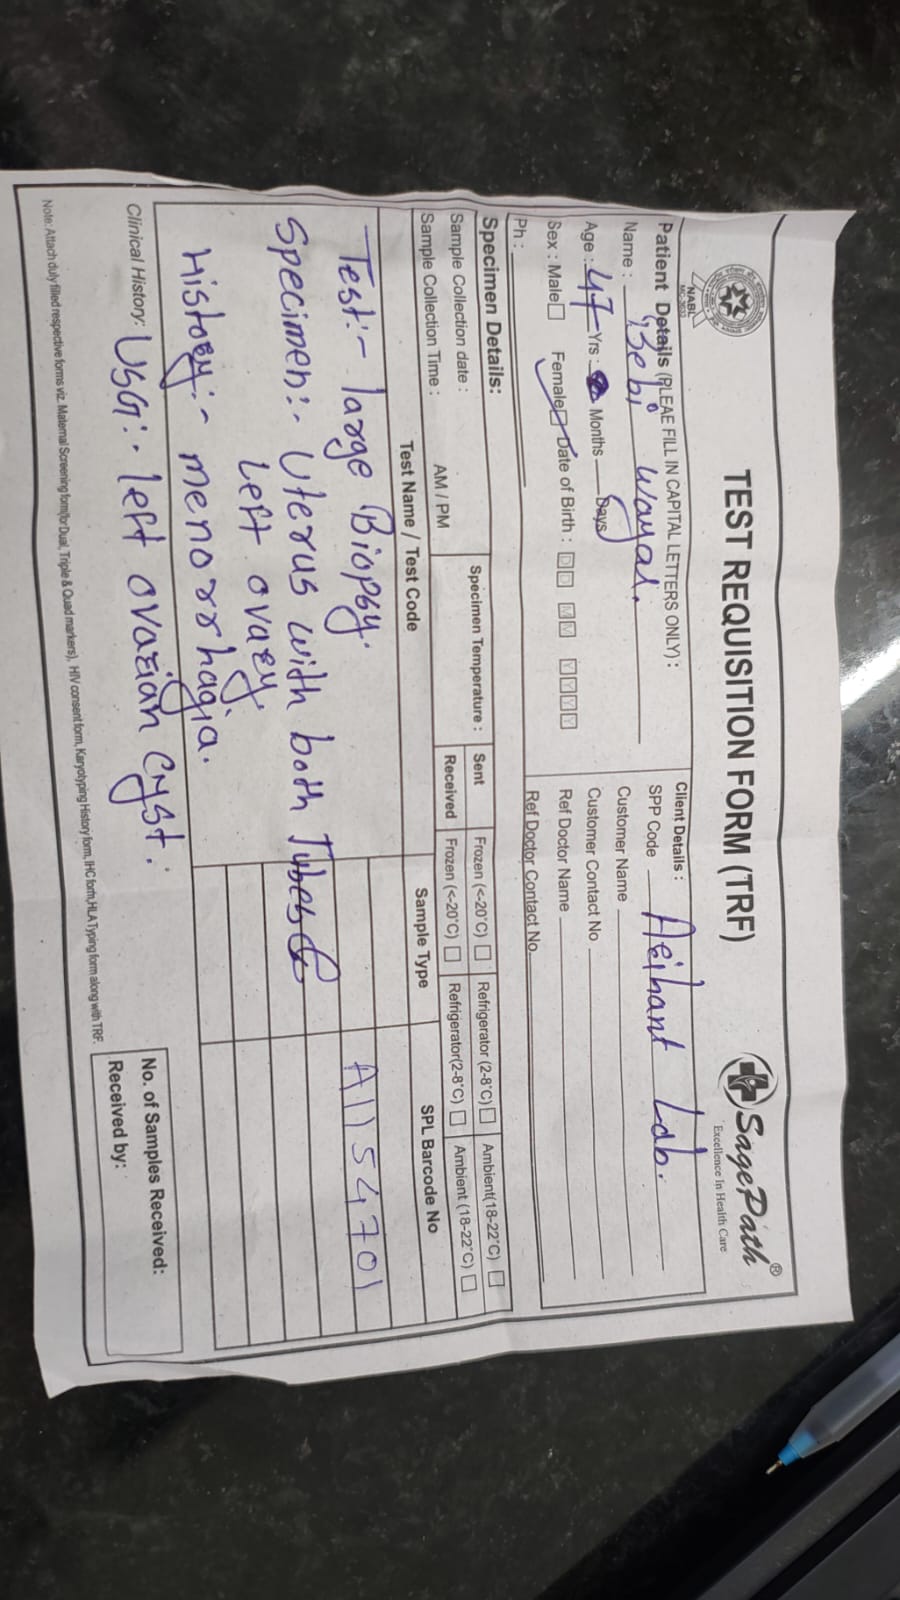 TEST REQUISITION FORM (TRF)
SagePath®
Excellence In Health Care
NABL
Patient Details (PLEAE FILL IN CAPITAL LETTERS ONLY) :
Name : Bebi wayal.
Age : 47 Yrs : Months Days
Sex : Male Female Date of Birth : D D M M Y Y Y Y
Ph :
Client Details :
SPP Code Arihant Lab.
Customer Name
Customer Contact No
Ref Doctor Name
Ref Doctor Contact No.
Specimen Details:
Sample Collection date :
Sample Collection Time : AM / PM
Specimen Temperature :
Sent Frozen (<-20°C) Refrigerator (2-8°C) Ambient(18-22°C)
Received Frozen (<-20°C) Refrigerator(2-8°C) Ambient (18-22°C)
Test Name / Test Code Sample Type SPL Barcode No
Test:- large Biopsy. A1154701
Specimen:- Uterus with both Tubes &
Left ovary.
History:- menorrhagia.
Clinical History: USG:- left ovarian cyst.
No. of Samples Received:
Received by:
Note: Attach duly filled respective forms viz. Maternal Screening form(for Dual, Triple & Quad markers), HIV consent form, Karyotyping History form, IHC form,HLA Typing form along with TRF.